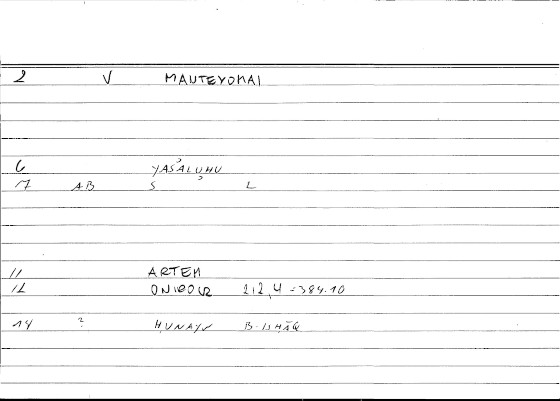 2 V MANTEVOMAI
6 YAŠALUḤU
17 AB S L
11 ARTEM
12 ONIROCR 2,2,4 = 384.10
14 ? ḤUNAYN B. ISḤĀQ